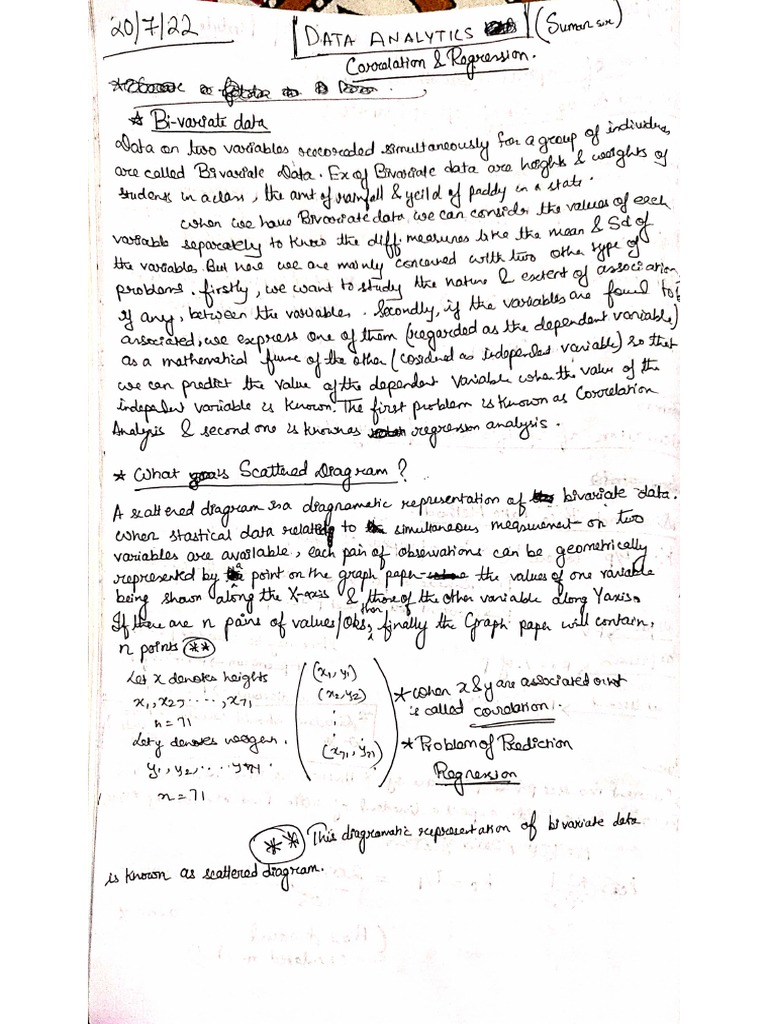 20/7/22
DATA ANALYTICS (Suman sir)
Correlation & Regression.
* Bi-variate data
Data on two variables recoreded simultaneously for a group of individuals
are called Bivariate Data. Ex of Bivariate data are heights & weights of
students in a class, the amt of rainfall & yeild of paddy in a state.
When we have Bivariate data we can consider the values of each
variable seperately to know the diff. measures like the mean & Sd of
the variables. But here we are mainly concerned with two other type of
problems. firstly, we want to study the nature & extent of association,
if any, between the variables. Secondly, if the variables are found to be
associated, we express one of them (regarded as the dependent variable)
as a mathematical func of the other (cosidered as independent variable) so that
we can predict the value of the dependent variable when the value of the
independent variable is known. The first problem is known as Correlation
Analysis & second one is known as regression analysis.
* What is Scattered Diagram?
A scattered diagram is a diagramatic representation of bivariate data.
When stastical data relating to simultaneous measurement on two
variables are available, each pair of observations can be geometrically
represented by a point on the graph paper the values of one variable
being shown along the X-axis & those of the other variable along Y axis.
If there are n pairs of values/Obs, then finally the Graph paper will contain,
n points **
Let x denotes heights
x₁, x₂, ....., x₇₁
n = 71
Let y denotes weight.
y₁, y₂, .... y₇₁
n = 71
(x₁, y₁)
(x₂, y₂)
⋮
(x₇₁, y₇₁)
* When x & y are associated
is called correlation.
* Problem of Prediction
Regression
** This diagramatic representation of bivariate data
is known as scattered diagram.